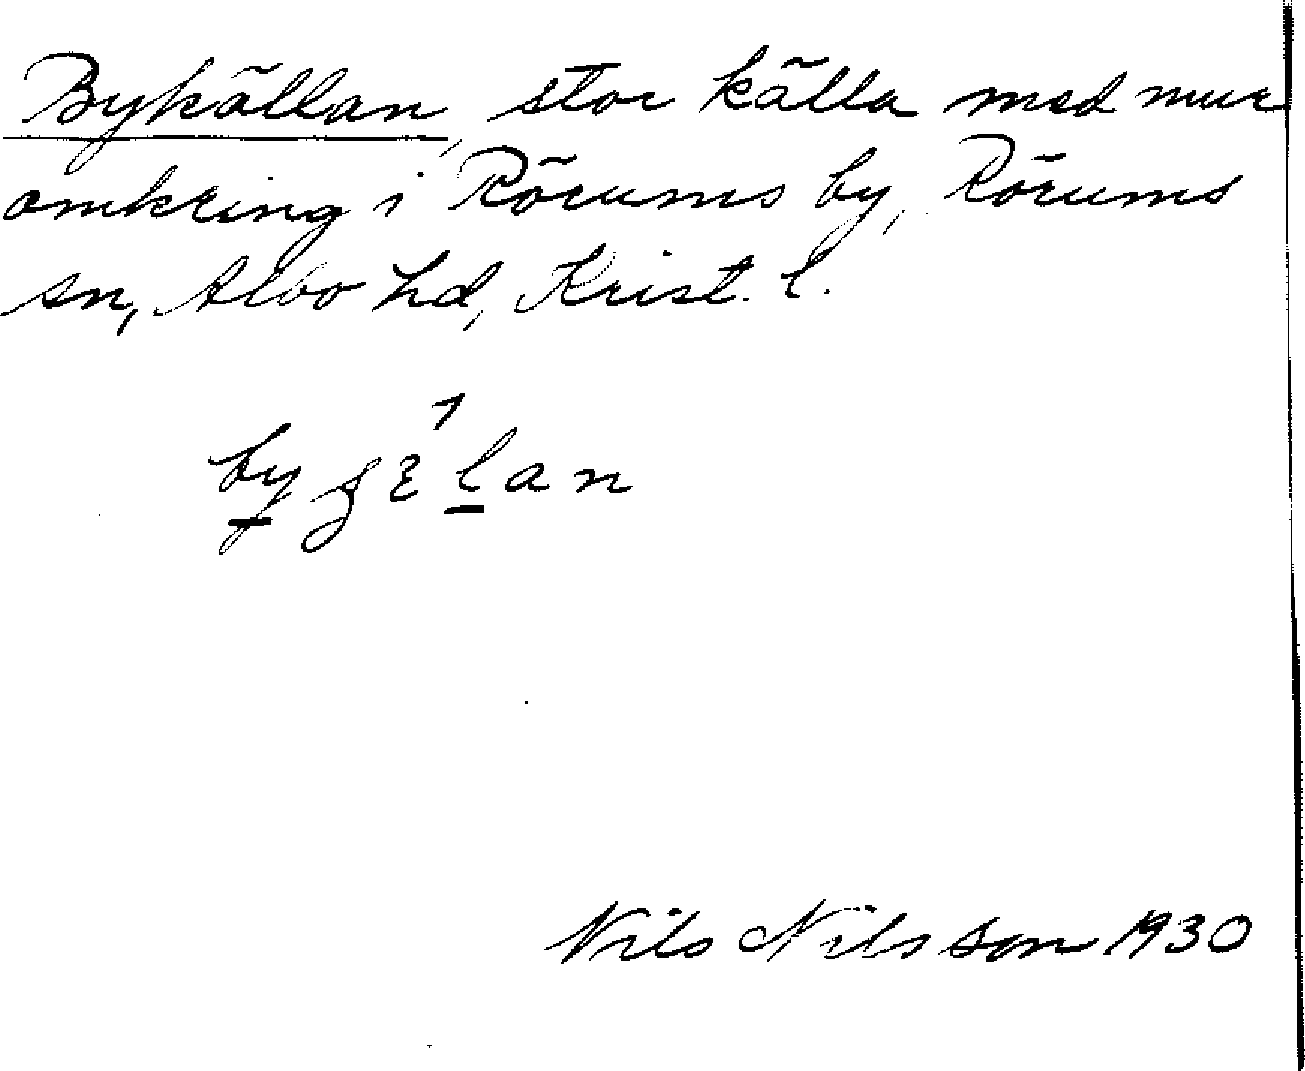 Bykällan, stor källa med mur
omkring i Rörums by, Rörums
sn, Albo hd, Krist. l.
Nils Nilsson 1930